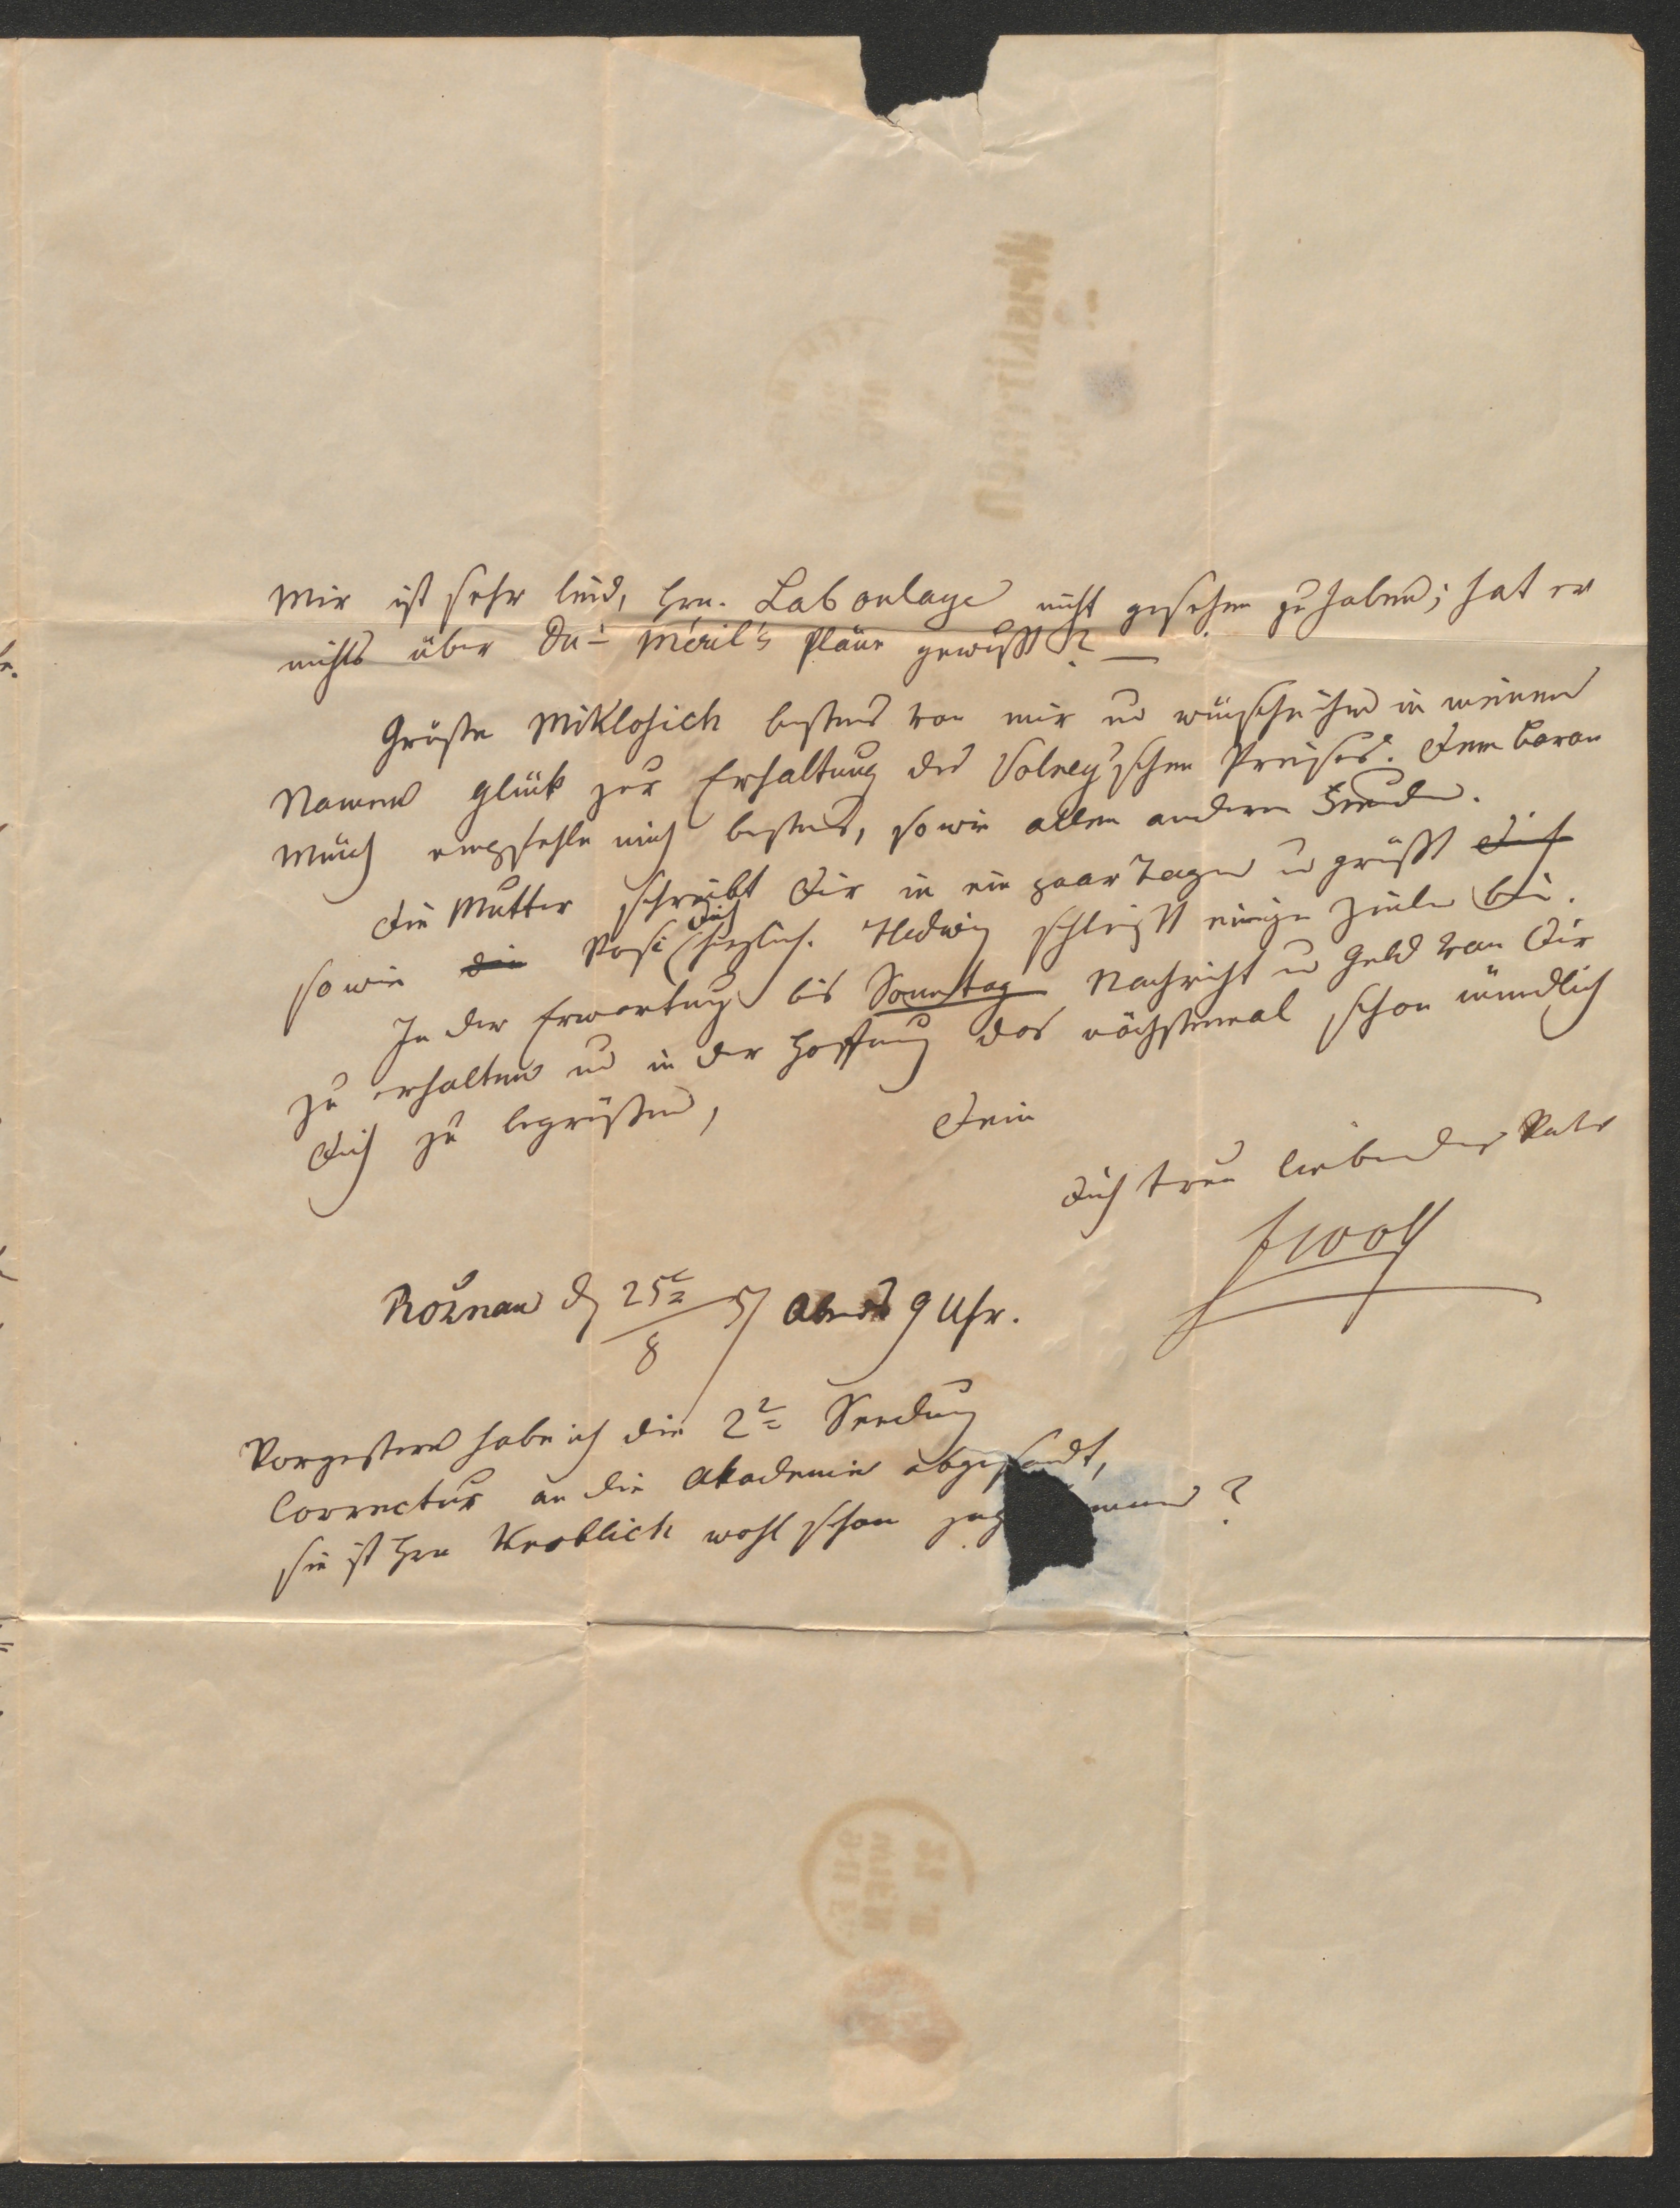 Mir ist sehr leid, Hrn. Laboulaye nicht gesehen zu haben; hat er
nichts über Du-Méril's Pläne gewußt? —
Grüße Miklosich bestens von mir u wünsche ihm in meinem
Namen Glück zur Erhaltung des Volney'schen Preises. Dem Baron
Münch empfehle mich bestens, sowie allen andern Freunden.
Die Mutter schreibt Dir in ein paar Tagen u grüßt Dich
sowie die Rosi Dich herzlich. Hedwig schließt einige Zeilen bei.
In der Erwartung bis Sonntag Nachricht u Geld von Dir
zu erhalten und in der Hoffnung das nächstemal schon mündlich
Dich zu begrüßen,
Dein
Dich treu liebender Vater
FWolf
Rožnau d 25t/8 57 Abends 9 Uhr.
Vorgestern habe ich die 2te Sendung
Correctur an die Akademie abgesandt,
sie ist Hrn Knoblich wohl schon zug mmen?
WIEN